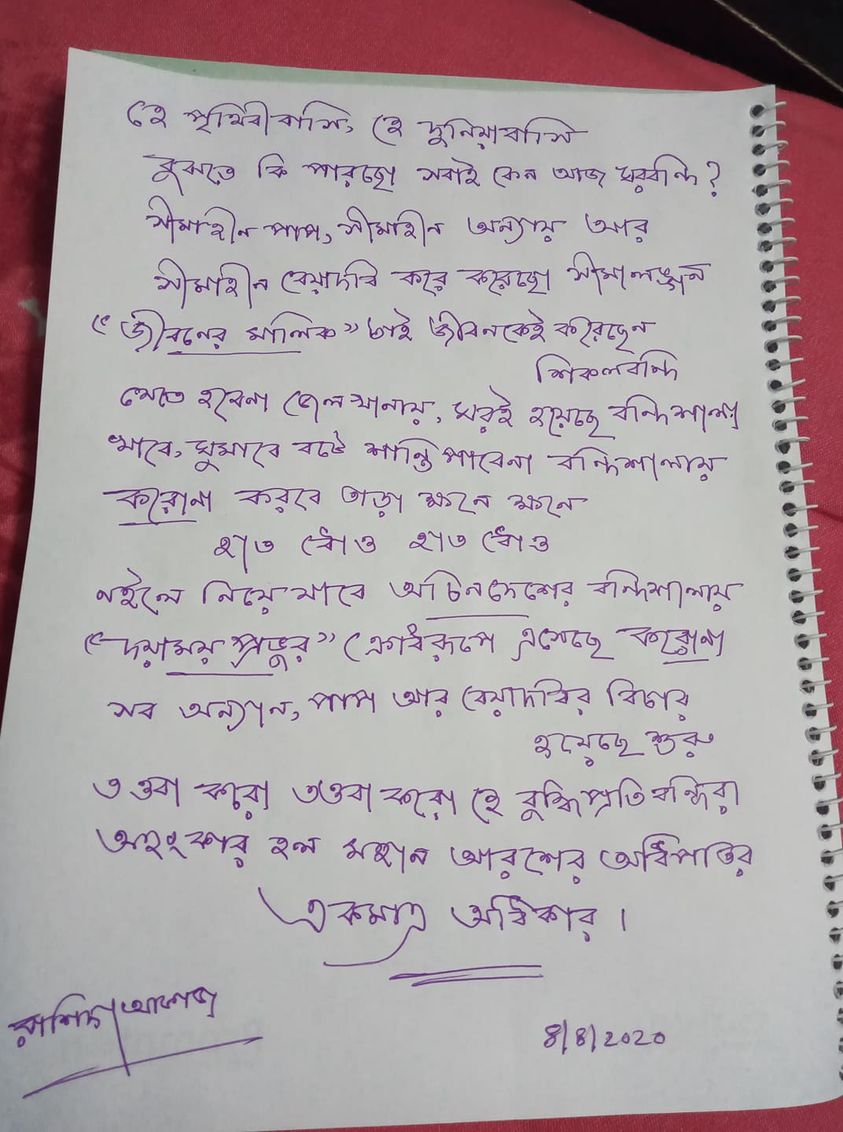 হে পৃথিবীবাসি, হে দুনিয়াবাসি
বুঝতে কি পারছো সবাই কেন আজ ঘরবন্দি?
সীমাহীন পাপ, সীমাহীন অন্যায় আর
সীমাহীন বেয়াদবি করে করেছো সীমালঙ্ঘন
"জীবনের মালিক" তাই জীবনকেই করেছেন
শিকলবন্দি
যেতে হবেনা জেলখানায়, ঘরই হয়েছে বন্দিশালা
খাবে, ঘুমাবে বটে শান্তি পাবেনা বন্দিশালায়
করোনা করবে তাড়া ক্ষনে ক্ষনে
হাত ধোও হাত ধোও
নইলে নিয়ে যাবে অচিনদেশের বন্দিশালায়
"দয়াময় প্রভুর" ক্রোধরূপে এসেছে করোনা
সব অন্যায়, পাপ আর বেয়াদবির বিচার
হয়েছে শুরু
তওবা করো তওবা করো হে বুদ্ধিপ্রতিবন্ধিরা
অহংকার হল মহান আরশের অধিপতির
একমাত্র অধিকার।
রাশিদা
8/8/2020